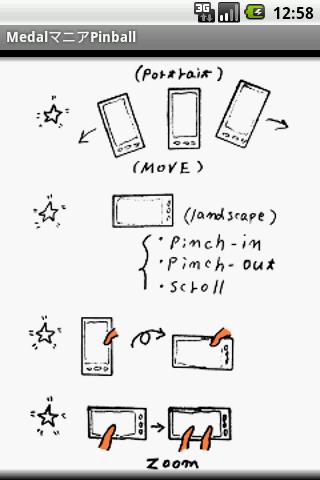 3G
12:58
MedalマニアPinball
(Portrait)
(MOVE)
(landscape)
・Pinch-in
・Pinch-out
・scroll
ZOOM